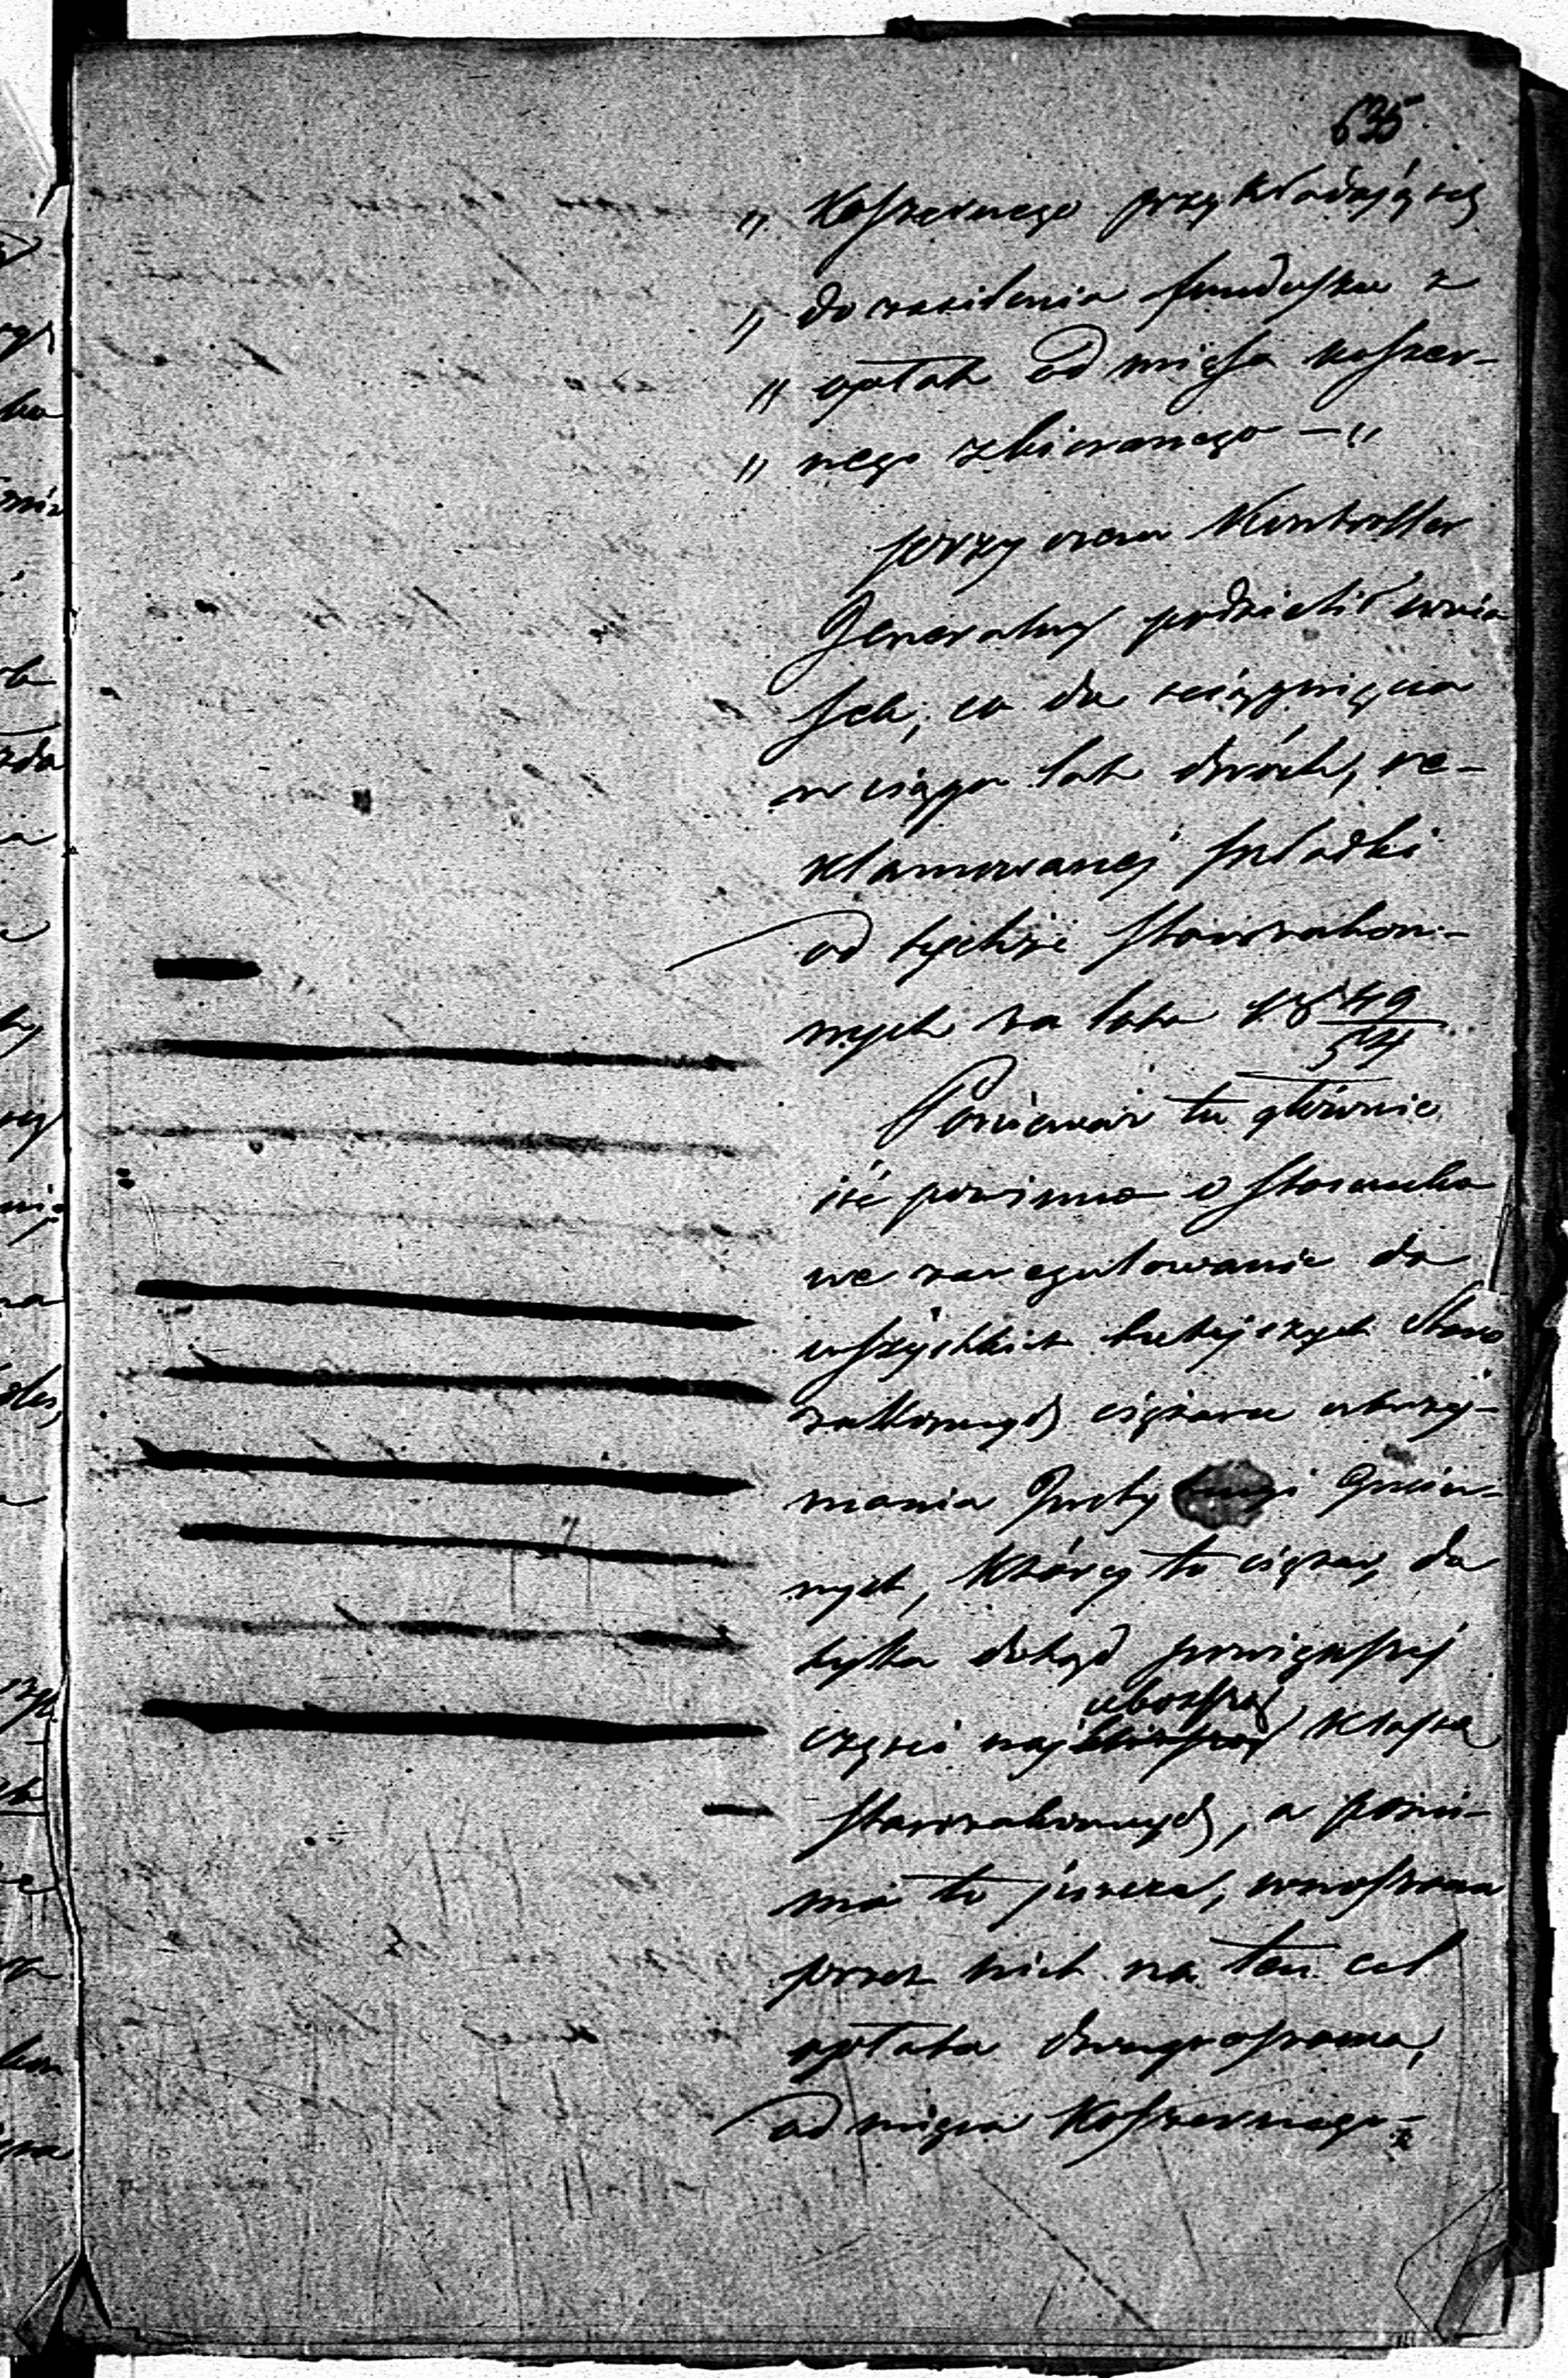 635
„ koszernego przykładającej
„ do zasilenia funduszu z
„ opłat od mięsa koszer-
„ nego zbieranego — „
przyczem Kontroller
Jeneralny podzielił wnio
sek, co do ściągnięcia
w ciągu lat dwóch, re-
klamowanej składki
od tychże starozakon-
nych za lata 1849/54
Ponieważ tu głównie
iść powinno o stosunko
we zaregulowanie do
wszystkich tutejszych Staro
zakonnych ciężaru utrzy-
mania Instytucyi Gmin-
nych, który to ciężar, do
tyka dotąd powiększej
części najuboższą klassę
starozakonnych, a pomi-
mo to jeszcze, wnoszona
przez nich na ten cel
opłata dwugroszowa,
od mięsa koszernego